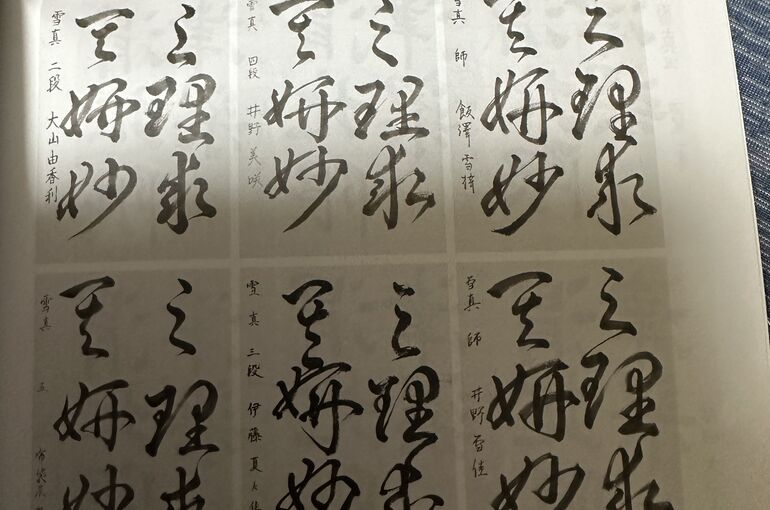 之理求
其妍妙
雪真 師 飯澤雪
之理求
其妍妙
雪真 四段 井野美咲
之理求
其妍妙
雪真 二段 大山由香利
之理求
其妍妙
雪真 師 井野雪佳
之理求
其妍妙
雪真 三段 伊藤真
之理求
其妍妙
雪真 五